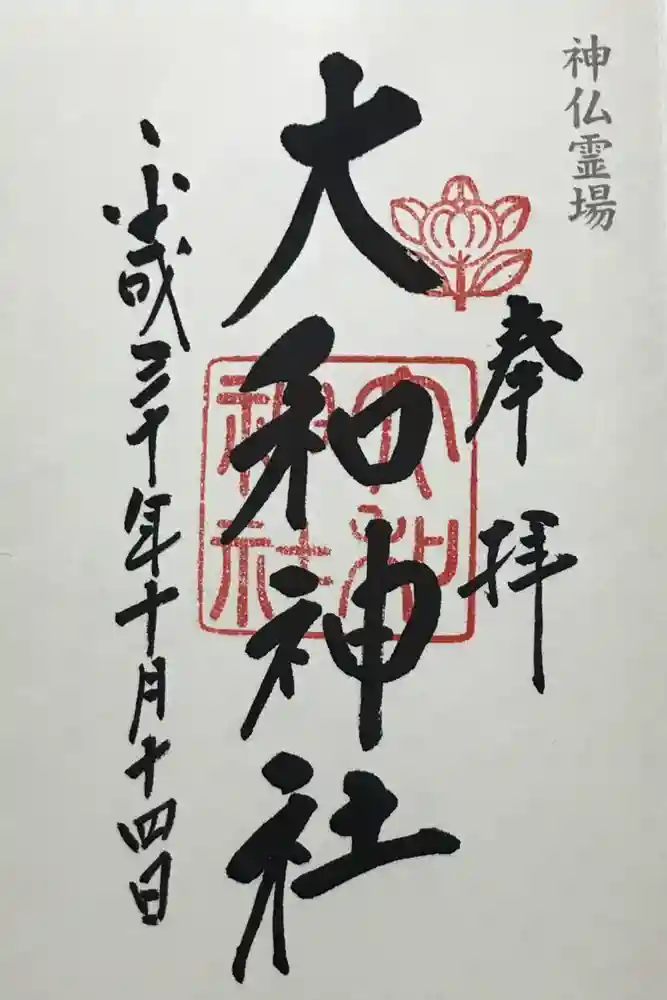 神仏霊場
奉拝
大和神社
大和
神社
平成三十年十月十四日